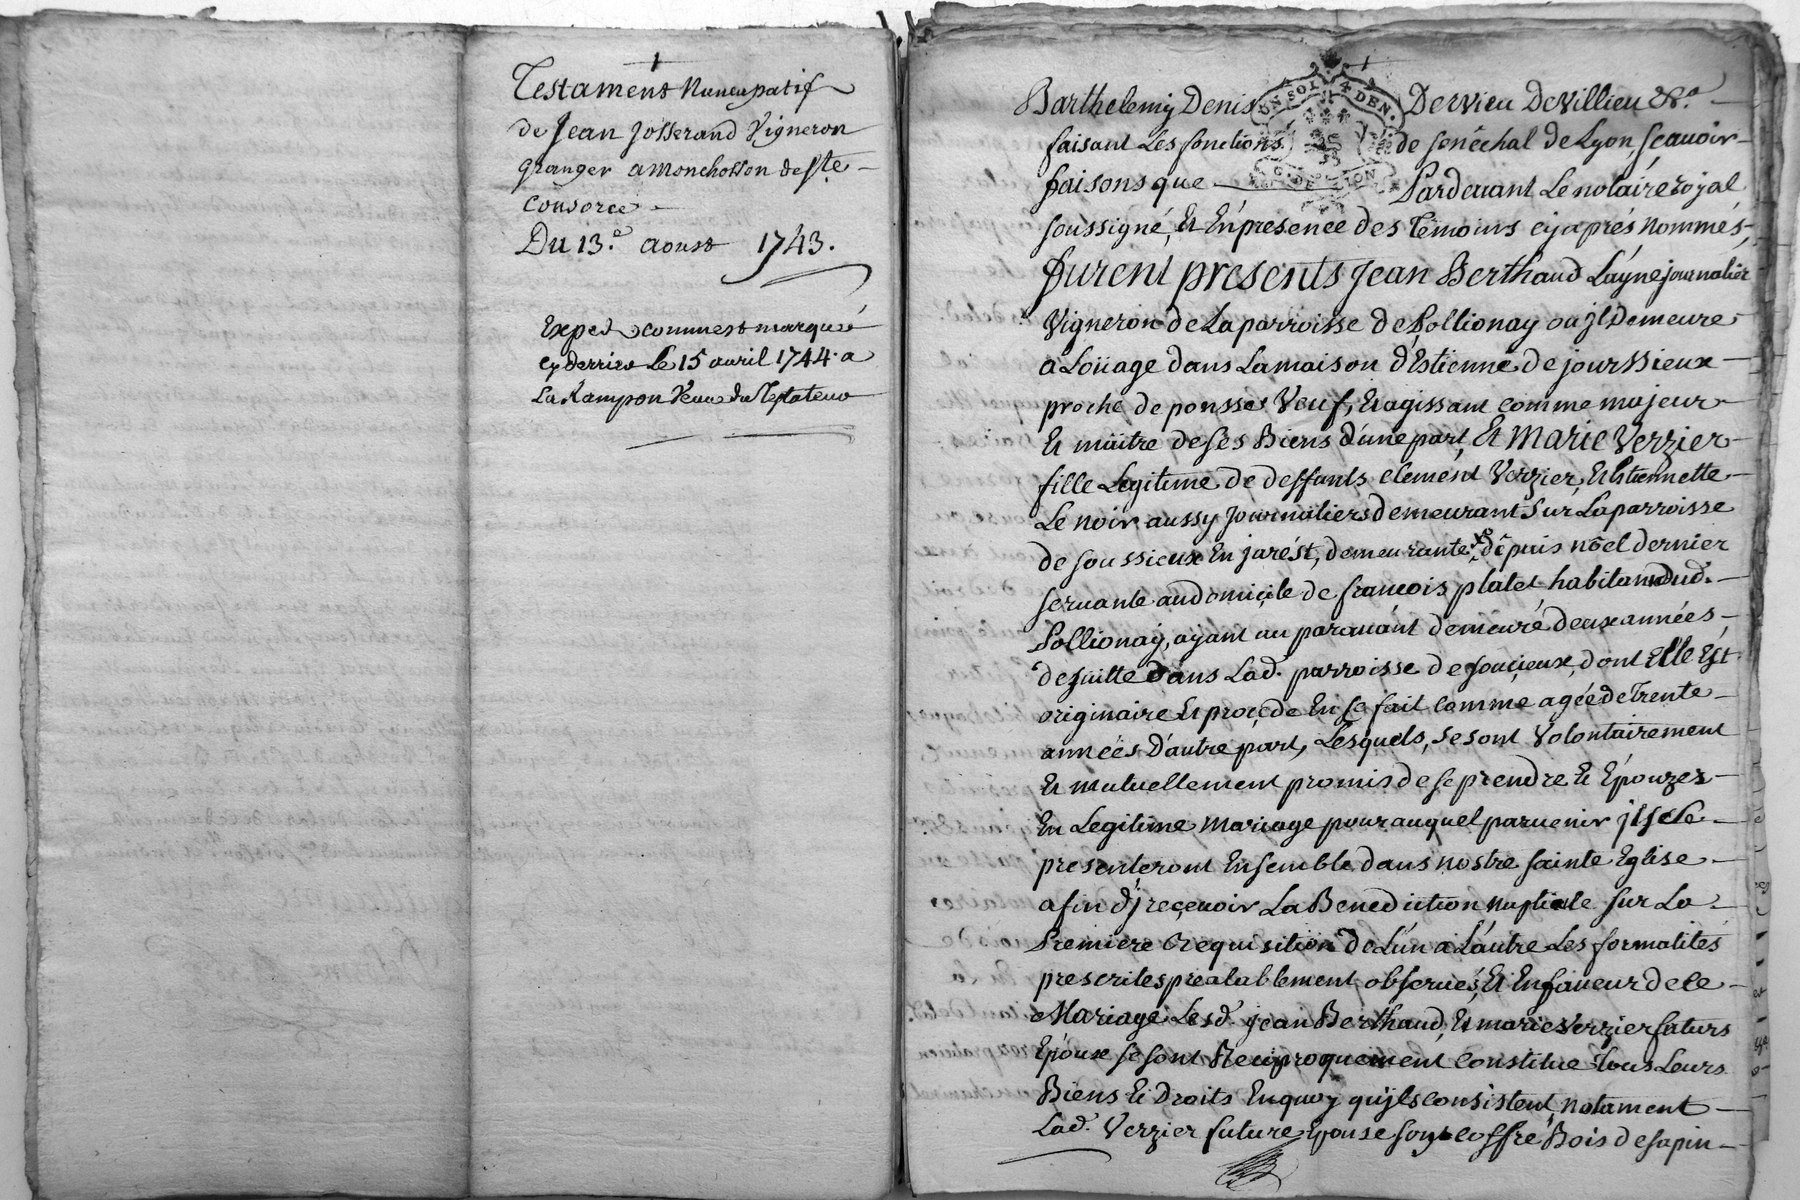 Testament Nuncupatif
de Jean Josserand Vigneron
Granger a Monchosson de Ste
Consorce
Du 13.e aoust 1743.
Exped. comme st marqué
cy derrier le 15 avril 1744. a
La Rampon veuve du Testateur
UN SOL 4 DEN.
G. DE LYON
Barthelemy Denis Dervieu Devillieu &a.
faisant Les fonctions de senéchal de Lyon, scauoir
faisons que Pardeuant Le notaire royal
soussigné, Et En presence des Témoins cy aprés nommés,
furent presents Jean Berthaud L'ayne journalier
Vigneron de La parroisse de Pollionay ou jl Demeure
a Loüage dans La maison d'Estienne de jourssieux
proche de ponsse Veuf, Et agissant comme majeur
Et maitre de ses Biens d'une part, Et Marie Verzier
fille Legitime de deffunts clement Verzier, Et Etiennette
Le noir aussy Journaliers demeurant Sur La parroisse
de soussieux En jarést, demeurante depuis noel dernier
seruante au domicile de francois platet habitant dud.
Pollionay, ayant au parauant demeuré deux années
de suitte Dans Lad. parroisse de souçieux, dont Elle Est
originaire Et proçede En ce fait comme agée de Trente
années D'autre part, Lesquels, se sont Volontairement
Et mutuellement promis de se prendre Et Epouzer
En Legitime Mariage pour auquel paruenir jls se
presenteront Ensemble dans nostre sainte Eglise
afin d'y reçeuoir La Benediction nuptiale sur La
Premiere Requisition de L'un a L'autre Les formalités
prescrites prealablement obserués, Et En faueur de ce
Mariage Lesd. Jean Berthaud, Et marie Verzier futurs
Epoux se sont Reciproquement constitue Tous Leurs
Biens Et Droits En quoy qu'jls consistent, notament
Lad. Verzier future Epouse son coffre Bois de sapin